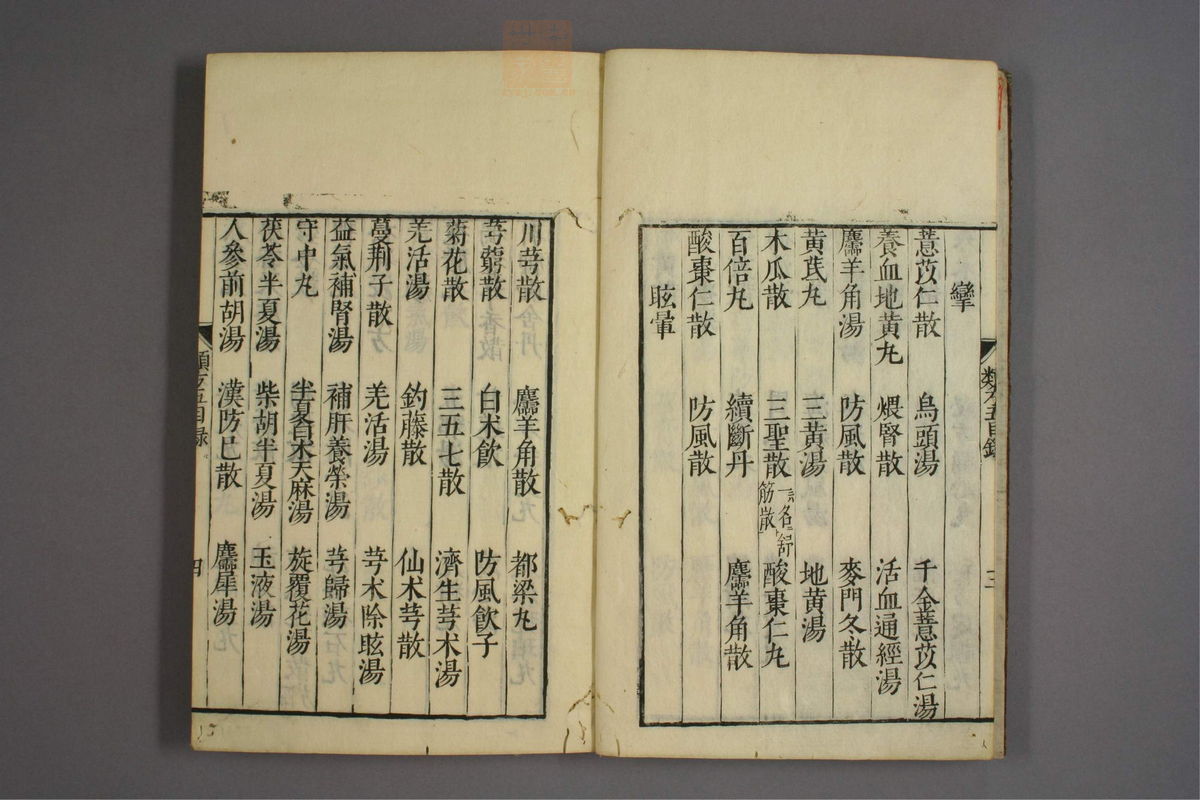 攣
薏苡仁散 烏頭湯 千金薏苡仁湯
養血地黃丸 煨腎散 活血通經湯
麢羊角湯 防風散 麥門冬散
黃芪丸 三黃湯 地黃湯
木瓜散 三聖散 一名舒筋散 酸棗仁丸
百倍丸 續斷丹 麢羊角散
酸棗仁散 防風散
眩暈
類方五目錄
三
川芎散 麢羊角散 都梁丸
芎藭散 白朮飲 防風飲子
菊花散 三五七散 濟生芎朮湯
羌活湯 鈎藤散 仙朮芎散
蔓荆子散 羌活湯 芎朮除眩湯
益氣補腎湯 補肝養榮湯 芎歸湯
守中丸 半夏白朮天麻湯 旋覆花湯
茯苓半夏湯 柴胡半夏湯 玉液湯
人參前胡湯 漢防巳散 麢犀湯
類方五目録
四